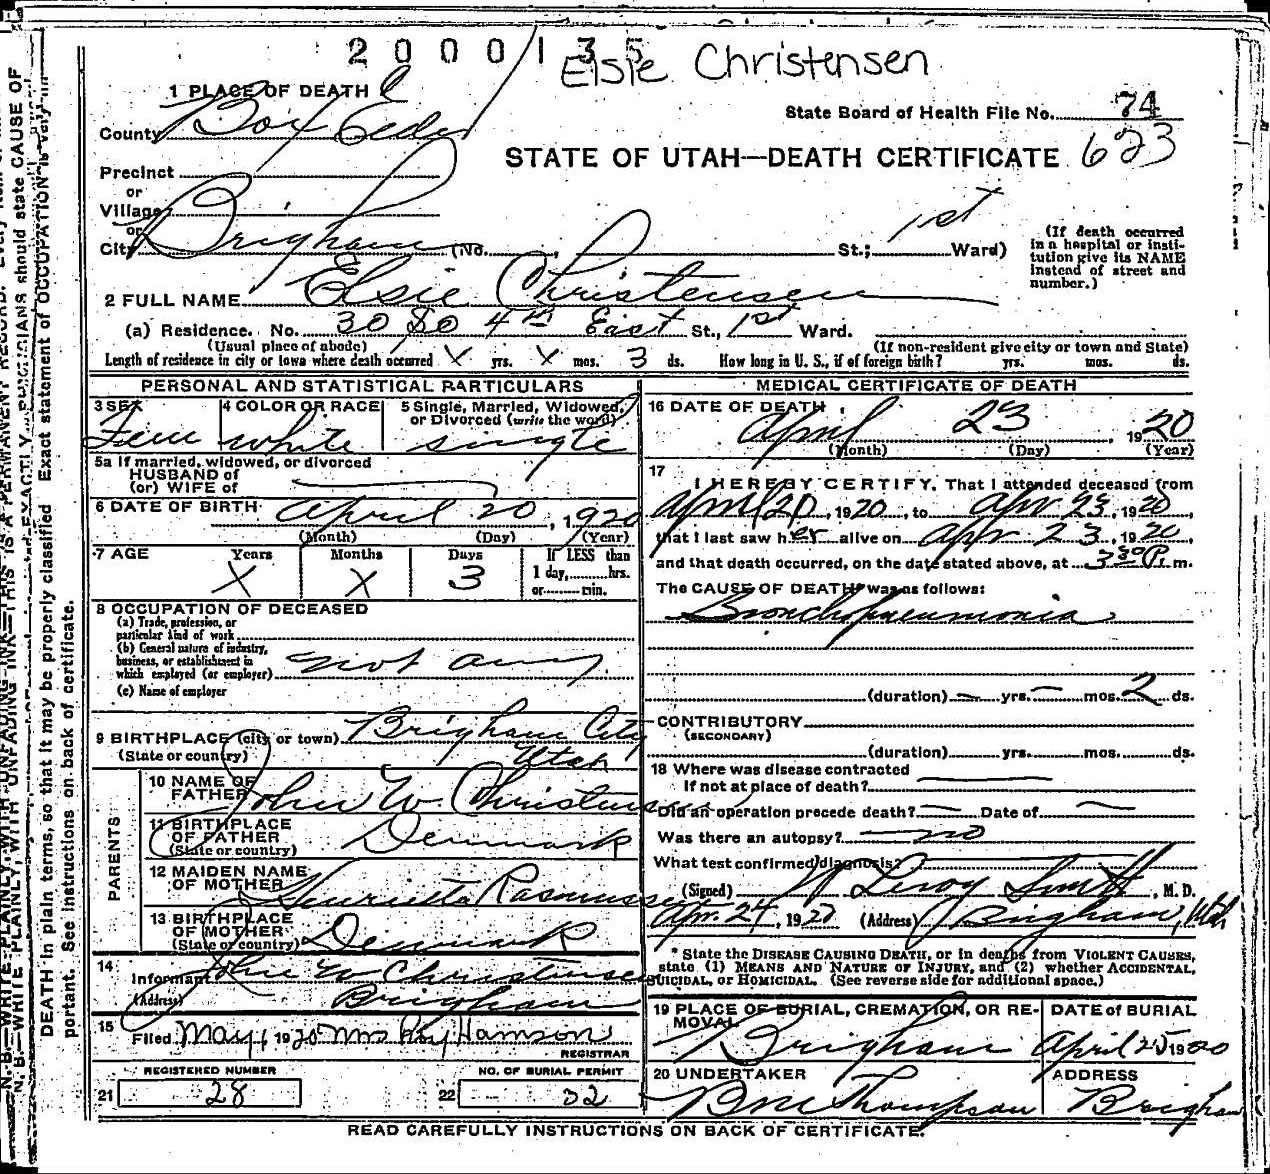 2000135
Elsie Christensen
1 PLACE OF DEATH
State Board of Health File No. 74
County Box Elder
623
STATE OF UTAH—DEATH CERTIFICATE
Precinct
or
Village
or
City Brigham (No. St.; 1st Ward)
(If death occurred in a hospital or insti-
tution give its NAME
instead of street and
number.)
2 FULL NAME Elsie Christensen
(a) Residence. No. 30 So 4th East St., 1st Ward.
(Usual place of abode) (If non-resident give city or town and State)
Length of residence in city or town where death occurred X yrs. X mos. 3 ds. How long in U. S., if of foreign birth? yrs. mos. ds.
PERSONAL AND STATISTICAL PARTICULARS
3 SEX 4 COLOR OR RACE 5 Single, Married, Widowed,
or Divorced (write the word)
Fem white single
5a If married, widowed, or divorced
HUSBAND of
(or) WIFE of
6 DATE OF BIRTH April 20, 1920
(Month) (Day) (Year)
7 AGE Years Months Days If LESS than
X X 3 1 day, hrs.
or min.
8 OCCUPATION OF DECEASED
(a) Trade, profession, or
particular kind of work
(b) General nature of industry,
business, or establishment in
which employed (or employer) not any
(c) Name of employer
9 BIRTHPLACE (city or town) Brigham City
(State or country) Utah
PARENTS
10 NAME OF
FATHER John W. Christensen
11 BIRTHPLACE
OF FATHER Denmark
(State or country)
12 MAIDEN NAME
OF MOTHER Henrietta Rasmussen
13 BIRTHPLACE
OF MOTHER Denmark
(State or country)
14 Informant John W Christensen
(Address) Brigham
15 Filed May 1, 1920 Mrs Roy Hamson
REGISTRAR
REGISTERED NUMBER NO. OF BURIAL PERMIT
21 28 22 32
MEDICAL CERTIFICATE OF DEATH
16 DATE OF DEATH
April 23, 1920
(Month) (Day) (Year)
17 I HEREBY CERTIFY, That I attended deceased from
April 20, 1920, to Apr 23, 1920,
that I last saw her alive on Apr 23, 1920,
and that death occurred, on the date stated above, at 3 30 P. m.
The CAUSE OF DEATH* was as follows:
Bronchopneumonia
(duration) — yrs. — mos. 2 ds.
CONTRIBUTORY
(SECONDARY)
(duration) yrs. mos. ds.
18 Where was disease contracted
If not at place of death?
Did an operation precede death? — Date of —
Was there an autopsy? no
What test confirmed diagnosis?
(Signed) W Leroy Smith, M. D.
Apr. 24, 1920 (Address) Brigham, Utah
* State the DISEASE CAUSING DEATH, or in deaths from VIOLENT CAUSES,
state (1) MEANS AND NATURE OF INJURY, and (2) whether ACCIDENTAL,
SUICIDAL, or HOMICIDAL. (See reverse side for additional space.)
19 PLACE OF BURIAL, CREMATION, OR RE-
MOVAL DATE OF BURIAL
Brigham April 25 1920
20 UNDERTAKER ADDRESS
Thompson Brigham
READ CAREFULLY INSTRUCTIONS ON BACK OF CERTIFICATE.
DEATH in plain terms, so that it may be properly classified. Exact statement of OCCUPATION is very
portant. See instructions on back of certificate.